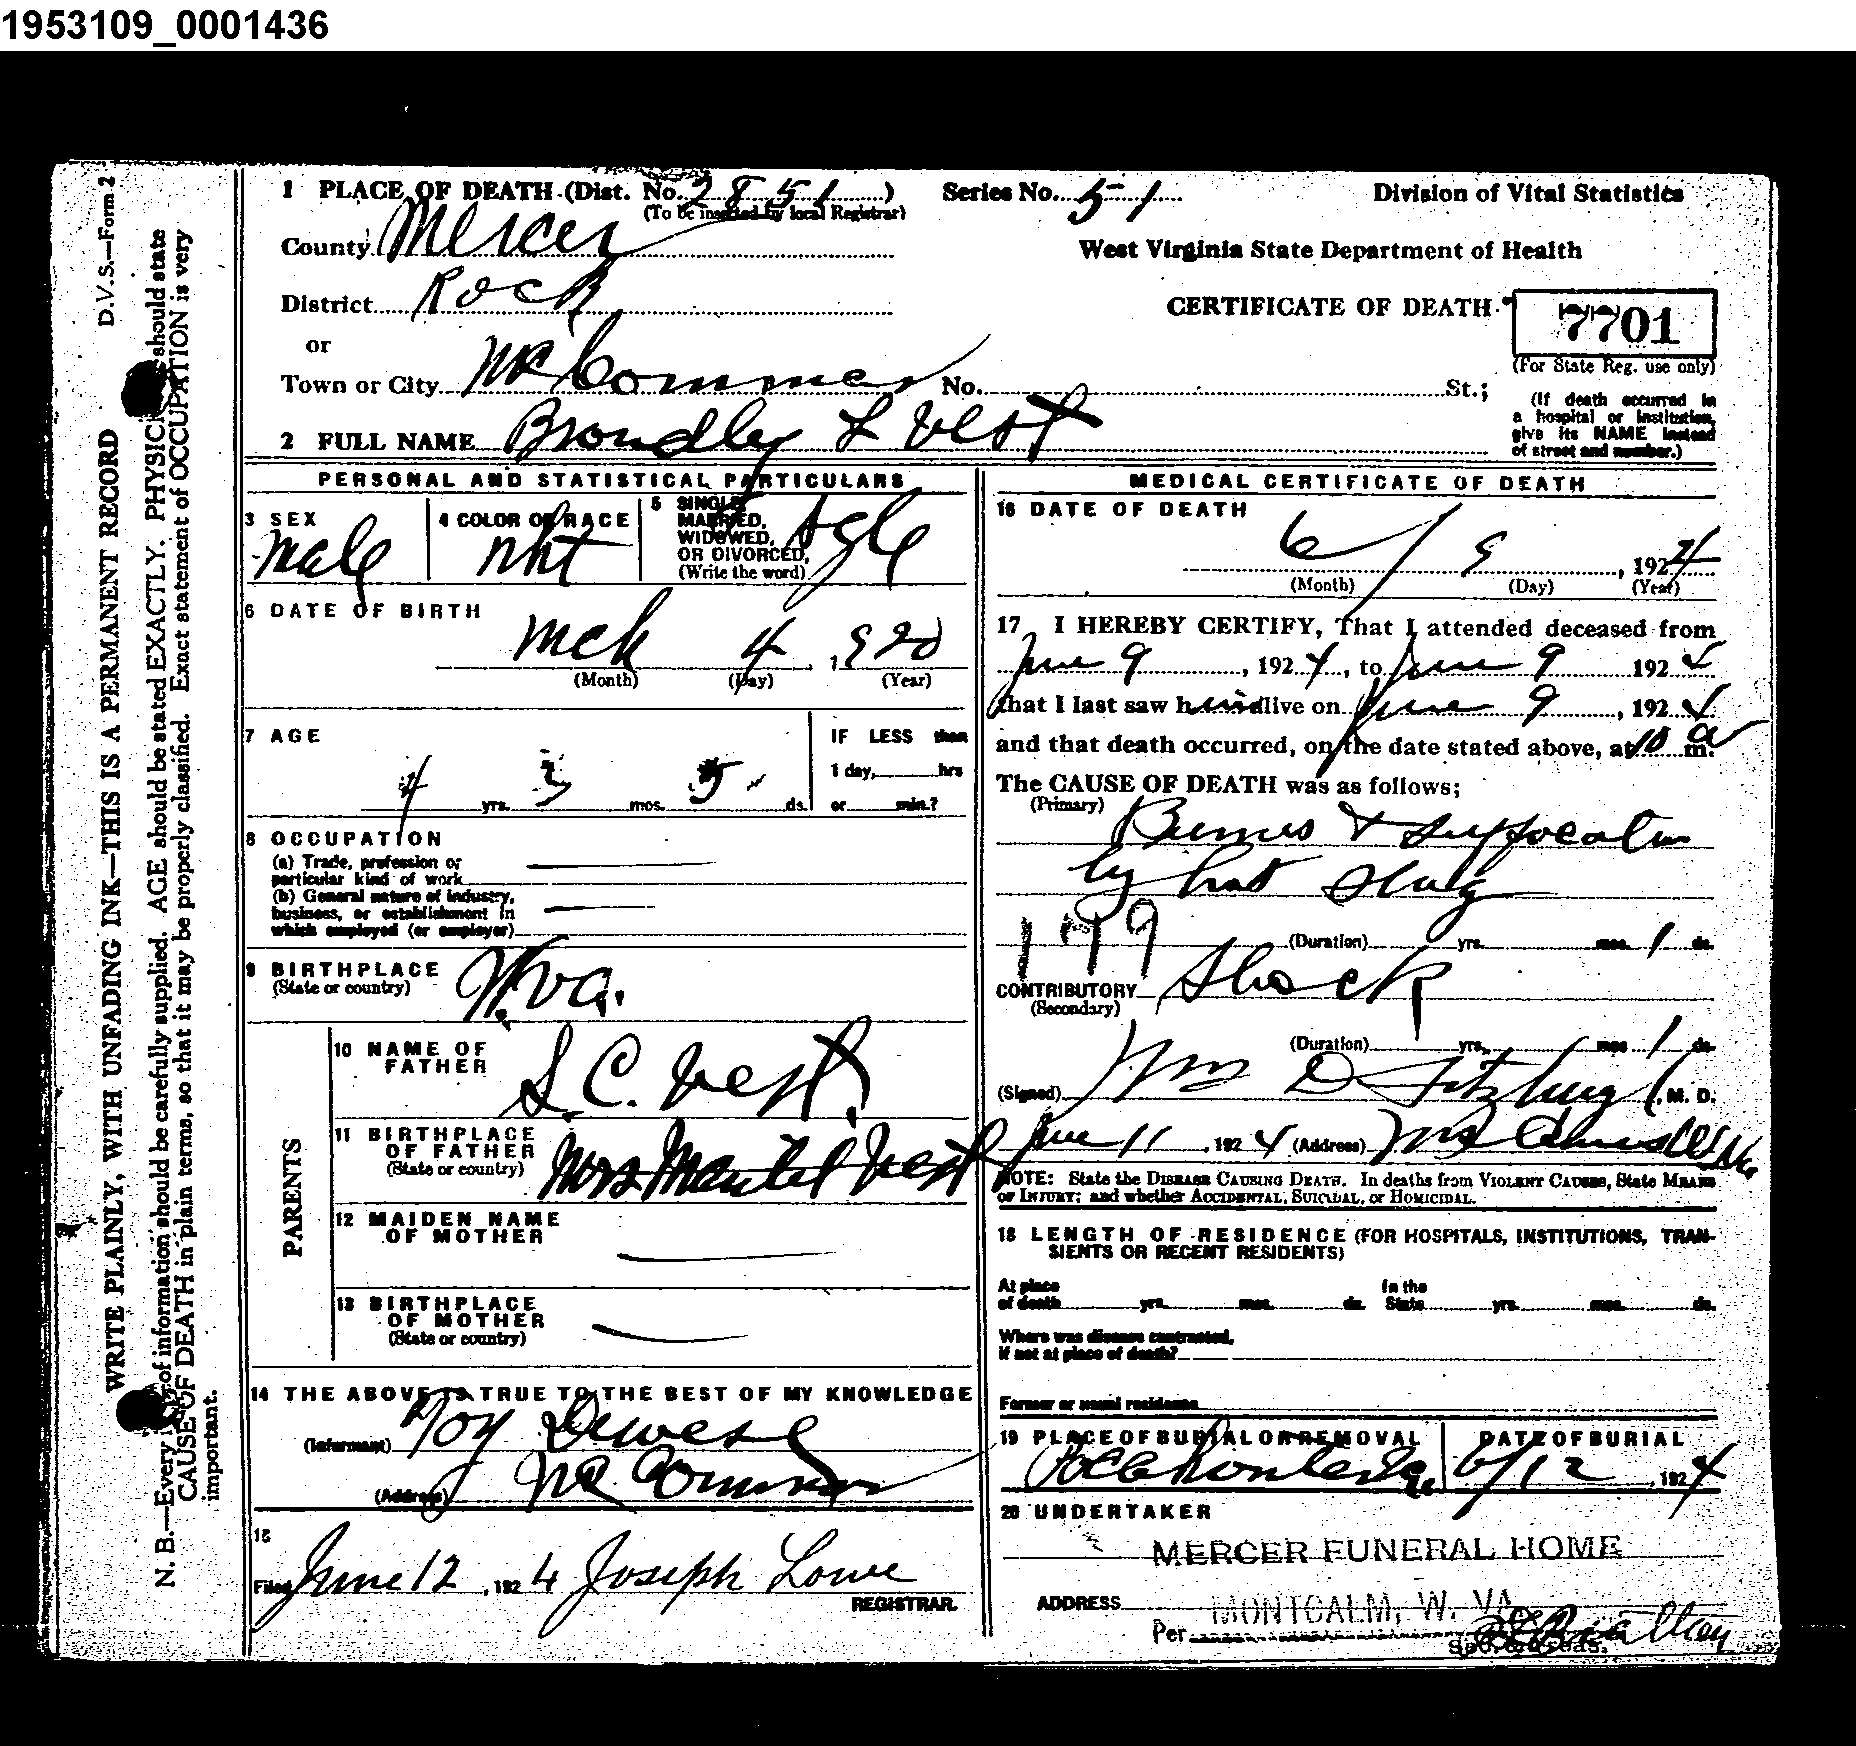 1953109_0001436
D.V.S.—Form 2
WRITE PLAINLY, WITH UNFADING INK—THIS IS A PERMANENT RECORD
N. B.—Every of information should be carefully supplied. AGE should be stated EXACTLY. PHYSIC should state
CAUSE OF DEATH in plain terms, so that it may be properly classified. Exact statement of OCCUPATION is very
important.
1 PLACE OF DEATH (Dist. No. 2851)
(To be inserted by local Registrar)
Series No. 51
Division of Vital Statistics
County Mercer
West Virginia State Department of Health
District Rock
CERTIFICATE OF DEATH
7701
(For State Reg. use only)
or
Town or City McCommas No. St.;
(If death occurred in
a hospital or institution,
give its NAME instead
of street and number.)
2 FULL NAME Brondley L Vest
PERSONAL AND STATISTICAL PARTICULARS
3 SEX
Male
4 COLOR OR RACE
Wht
5 SINGLE,
MARRIED,
WIDOWED,
OR DIVORCED,
(Write the word)
Sgle
6 DATE OF BIRTH
Mch 4, 1920
(Month) (Day) (Year)
7 AGE
4 yrs. 3 mos. 5 ds.
IF LESS than
1 day, hrs
or min.?
8 OCCUPATION
(a) Trade, profession or
particular kind of work
(b) General nature of industry,
business, or establishment in
which employed (or employer)
9 BIRTHPLACE
(State or country)
W.Va.
PARENTS
10 NAME OF
FATHER
S. C. Vest
11 BIRTHPLACE
OF FATHER
(State or country)
Mrs Vest
12 MAIDEN NAME
OF MOTHER
13 BIRTHPLACE
OF MOTHER
(State or country)
14 THE ABOVE IS TRUE TO THE BEST OF MY KNOWLEDGE
(Informant) Dewese
(Address) McCommas
15
Filed June 12, 1924 Joseph Lowe
REGISTRAR.
MEDICAL CERTIFICATE OF DEATH
16 DATE OF DEATH
6 / 9, 1924
(Month) (Day) (Year)
17 I HEREBY CERTIFY, That I attended deceased from
June 9, 1924, to June 9 1924
that I last saw him alive on June 9, 1924
and that death occurred, on the date stated above, at 10 a m.
The CAUSE OF DEATH was as follows;
(Primary)
Burns & suffocation
by hot slag
179
(Duration) yrs. mos. 1 ds.
CONTRIBUTORY Shock
(Secondary)
(Duration) yrs. mos 1 ds.
(Signed) Wm D Fitzhugh, M. D.
June 11, 1924 (Address)
NOTE: State the DISEASE CAUSING DEATH. In deaths from VIOLENT CAUSES, State MEANS
OF INJURY; and whether ACCIDENTAL, SUICIDAL, or HOMICIDAL.
18 LENGTH OF RESIDENCE (FOR HOSPITALS, INSTITUTIONS, TRAN-
SIENTS OR RECENT RESIDENTS)
At place
of death yrs. mos. ds.
In the
State yrs. mos. ds.
Where was disease contracted,
if not at place of death?
Former or usual residence
19 PLACE OF BURIAL OR REMOVAL
Pocahontas Va.
DATE OF BURIAL
6/12, 1924
20 UNDERTAKER
MERCER FUNERAL HOME
ADDRESS MONTCALM, W. VA.
Per